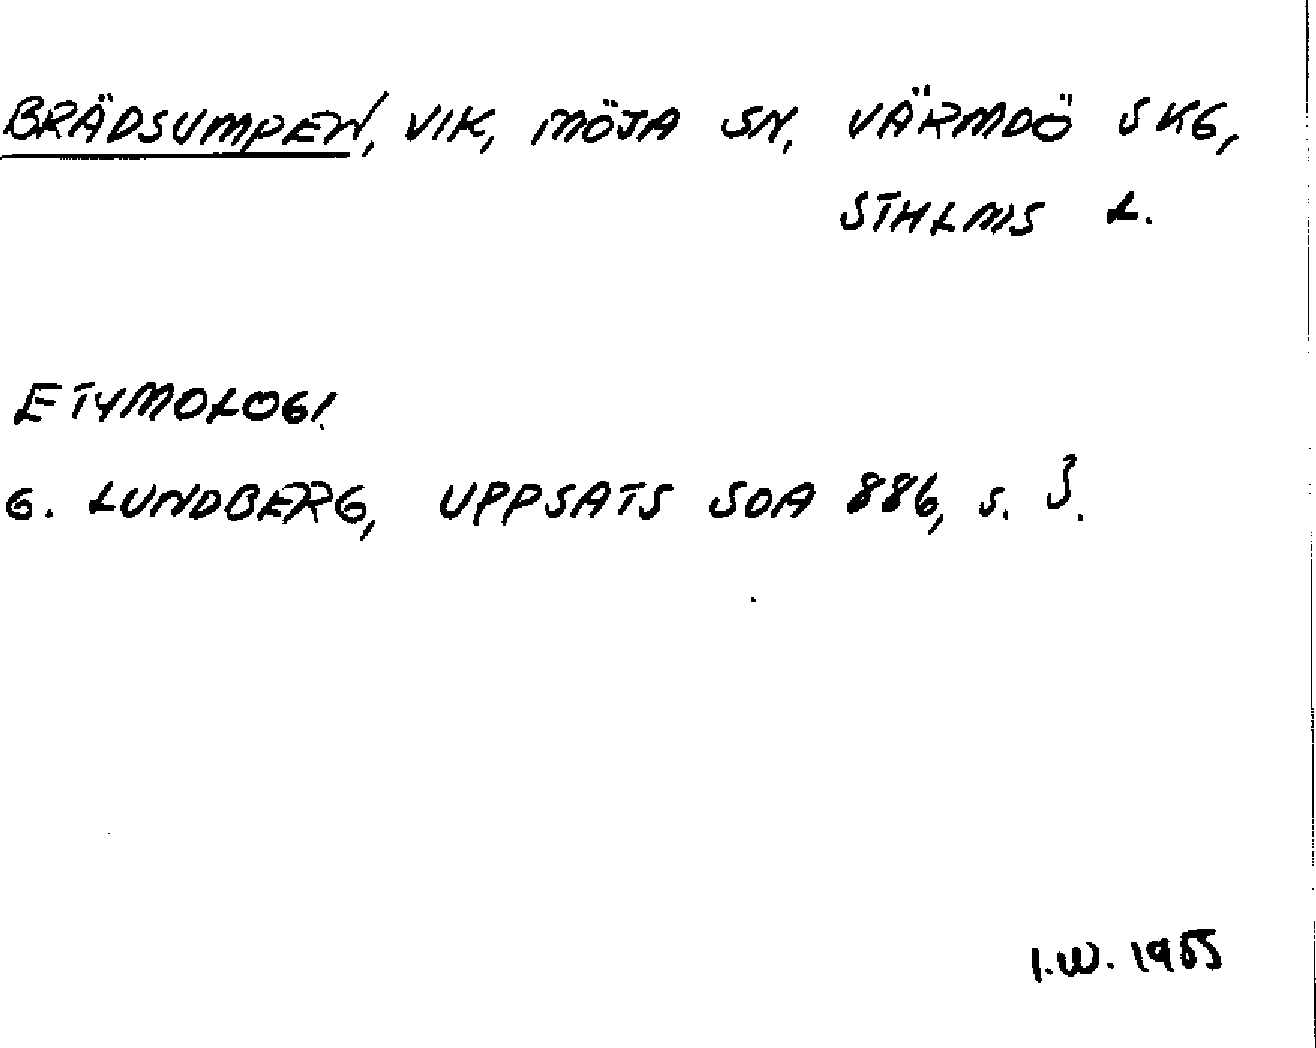 BRÄDSUMPEN, VIK, MÖJA SN, VÄRMDÖ SKG,
STHLMS L.
ETYMOLOGI.
G. LUNDBERG, UPPSATS SOA 886, s. 3.
I.W. 1955